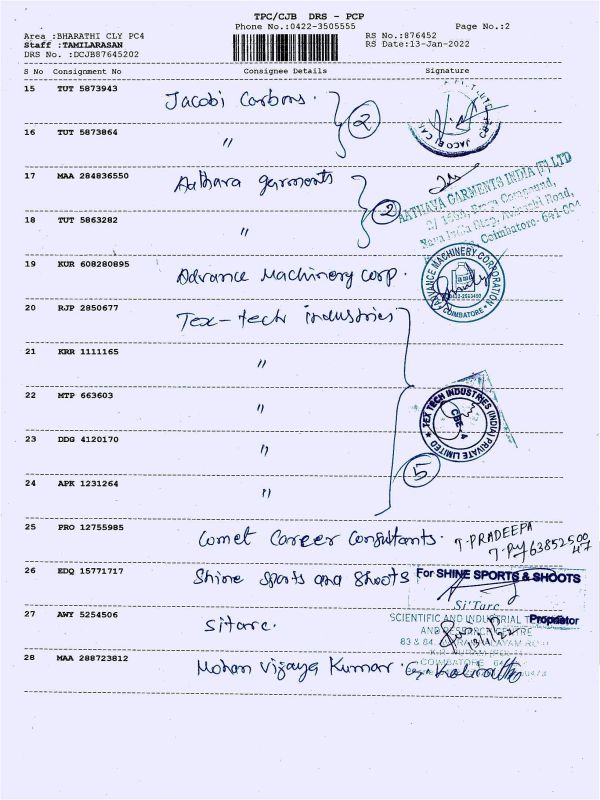 TPC/CJB DRS - PCP
Phone No.:0422-3505555 Page No.:2
Area :BHARATHI CLY PC4 RS No.:876452
Staff :TAMILARASAN RS Date:13-Jan-2022
DRS No. :DCJB87645202
S No Consignment No Consignee Details Signature
15 TUT 5873943 Jacobi Carbons. 2
JACOBI CA
16 TUT 5873864 "
17 MAA 284836550 Aathava garments 2
AATHAVA GARMENTS INDIA (P) LTD
Coimbatore- 641-004
18 TUT 5863282 "
19 KUR 608280895 Advance Machinery Corp.
ADVANCE MACHINERY CORPORATION
COIMBATORE
20 RJP 2850677 Tex-tech industries
21 KRR 1111165 "
22 MTP 663603 "
TEX TECH INDUSTRIES (INDIA) PRIVATE LIMITED
CBE - 4
23 DDG 4120170 "
24 APK 1231264 " 5
25 PRO 12755985 Comet Career Consultants. T. PRADEEPA
26 EDQ 15771717 Shine Sports and Shoots For SHINE SPORTS & SHOOTS
Si'Tarc
27 AWY 5254506 Sitarc. SCIENTIFIC AND INDUSTRIAL Proprietor
13/1/22
28 MAA 288723812 Mohan Vijaya Kumar.
COIMBATORE